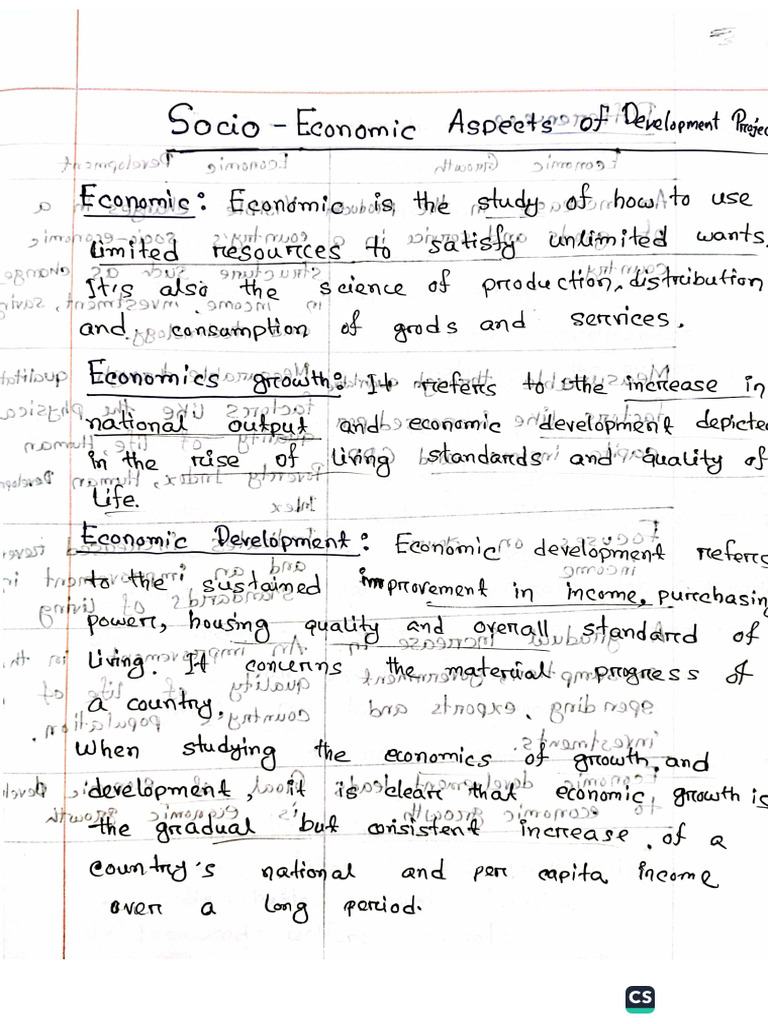 Socio-Economic Aspects of Development Projec
Economic: Economic is the study of how to use
limited resources to satisfy unlimited wants.
It's also the science of production, distribution
and consumption of goods and services.
Economics growth: It refers to the increase in
national output and economic development depicted
in the rise of living standards and quality of
Life.
Economic Development: Economic development refers
to the sustained improvement in income, purchasing
power, housing quality and overall standard of
living. It concerns the material progress of
a country.
When studying the economics of growth and
development, it is clear that economic growth is
the gradual but consistent increase of a
country's national and per capita income
over a long period.
CS